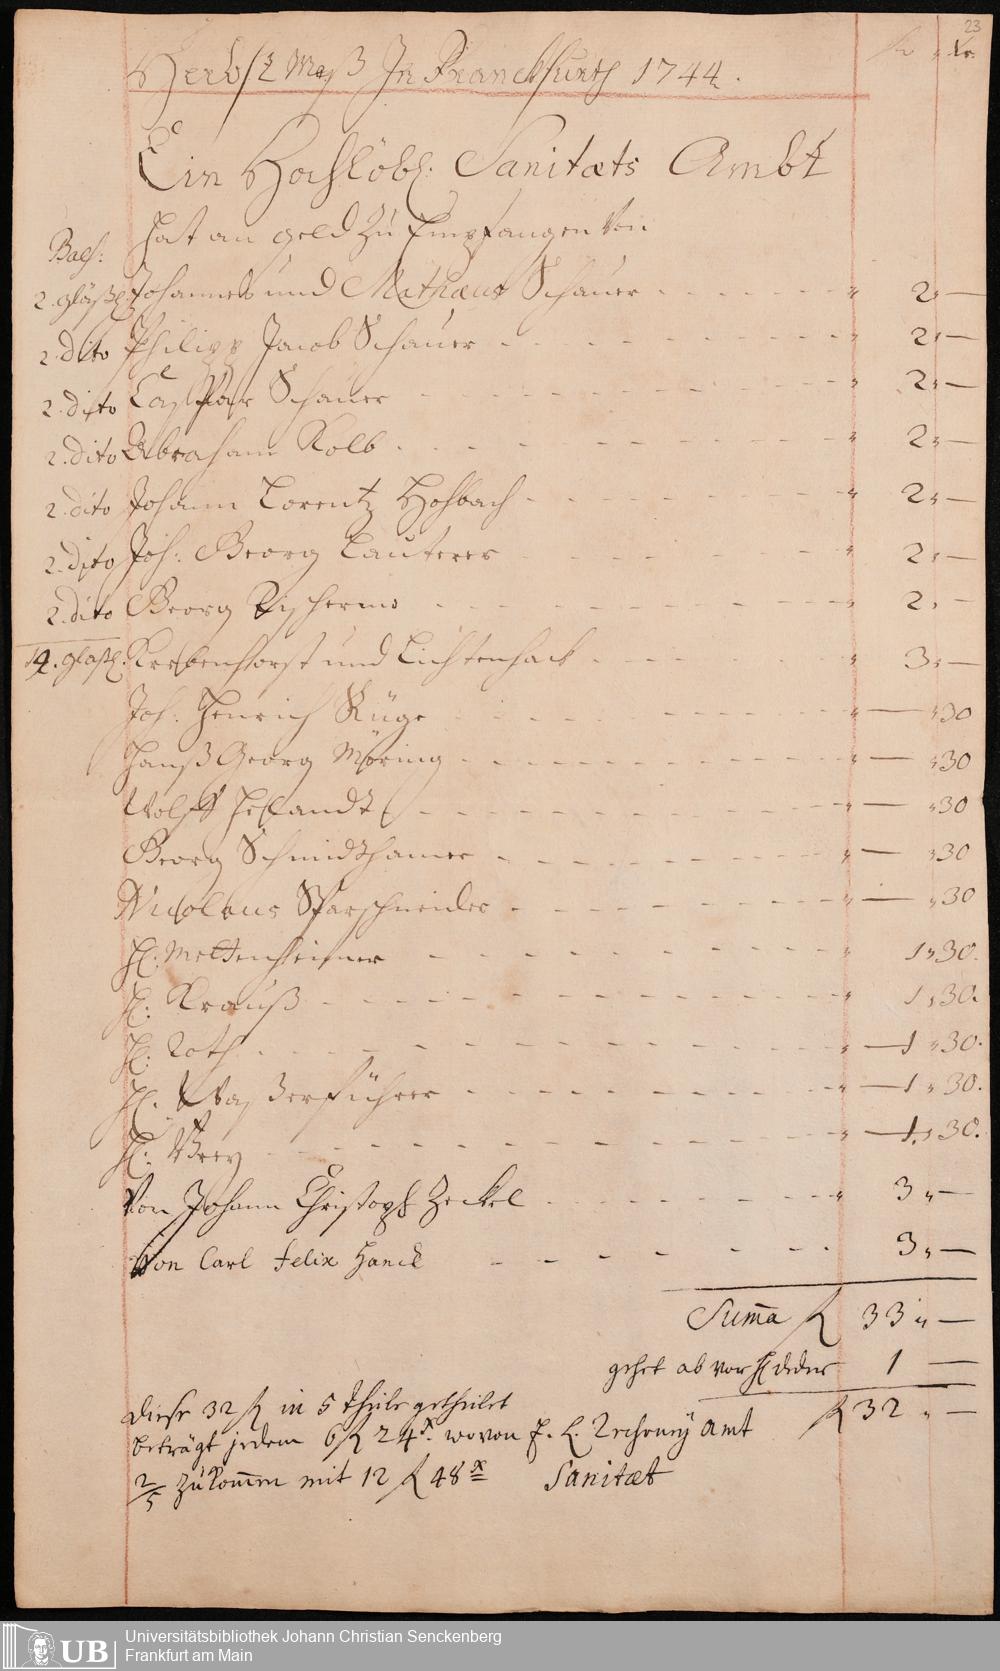 23
fl " Xr.
Herbst Meß In Franckfurth 1744.
Ein Hochlöbl: Sanitæts Ambt
hat an geld zu Empfangen von
2. gläßl: Johannes und Mathæus Schauer - - - " 2 " —
2. dito Philipp Jacob Schauer - - - " 2 " —
2. dito Caspar Schauer - - - " 2 " —
2. dito Abraham Kolb - - - " 2 " —
2. dito Johann Lorentz Hohbach - - - " 2 " —
2. dito Joh: Georg Lauterer - - - " 2 " —
2. dito Georg - - - " 2 " —
14. glaßl: und Lichtenhack - - - " 3 " —
Joh: Henrich Rüge - - - " — " 30
Hanß Georg Möring - - - " — " 30
Wolff - - - " — " 30
Georg Schmidthamer - - - " — " 30
Nicolaus Sparschneider - - - " — " 30
H: Mettenheimer - - - " 1 " 30.
H: Krauß - - - " 1 " 30.
H: Roth - - - " — 1 " 30.
H: Waßerführer - - - " — 1 " 30.
H: Frey - - - " — 1 " 30.
Von Johann Christoph Zeckel - - - " 3 " —
Von Carl Felix Hanck - - - 3 " —
Suma fl 33 " —
gehet ab vor H 1 —
fl 32 " —
Diese 32 fl in 5 theile getheilet
beträgt jedem 6 fl 24 x. wovon E. L. Recheney Amt
2/5 zukommen mit 12 fl 48 x Sanitæt
UB Universitätsbibliothek Johann Christian Senckenberg
Frankfurt am Main